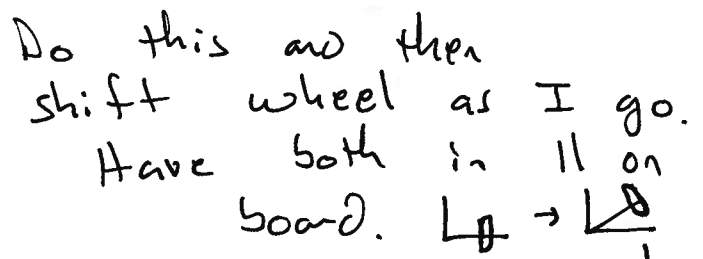 Do this and then
shift wheel as I go.
Have both in || on
board. →